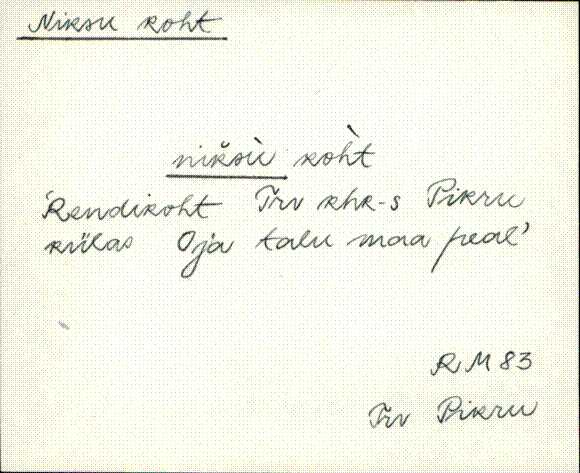 Niksu koht
nik̆sù koh̀t
'Rendikoht Trv khk-s Pikru
külas Oja talu maa peal'
RM 83
Trv Pikru